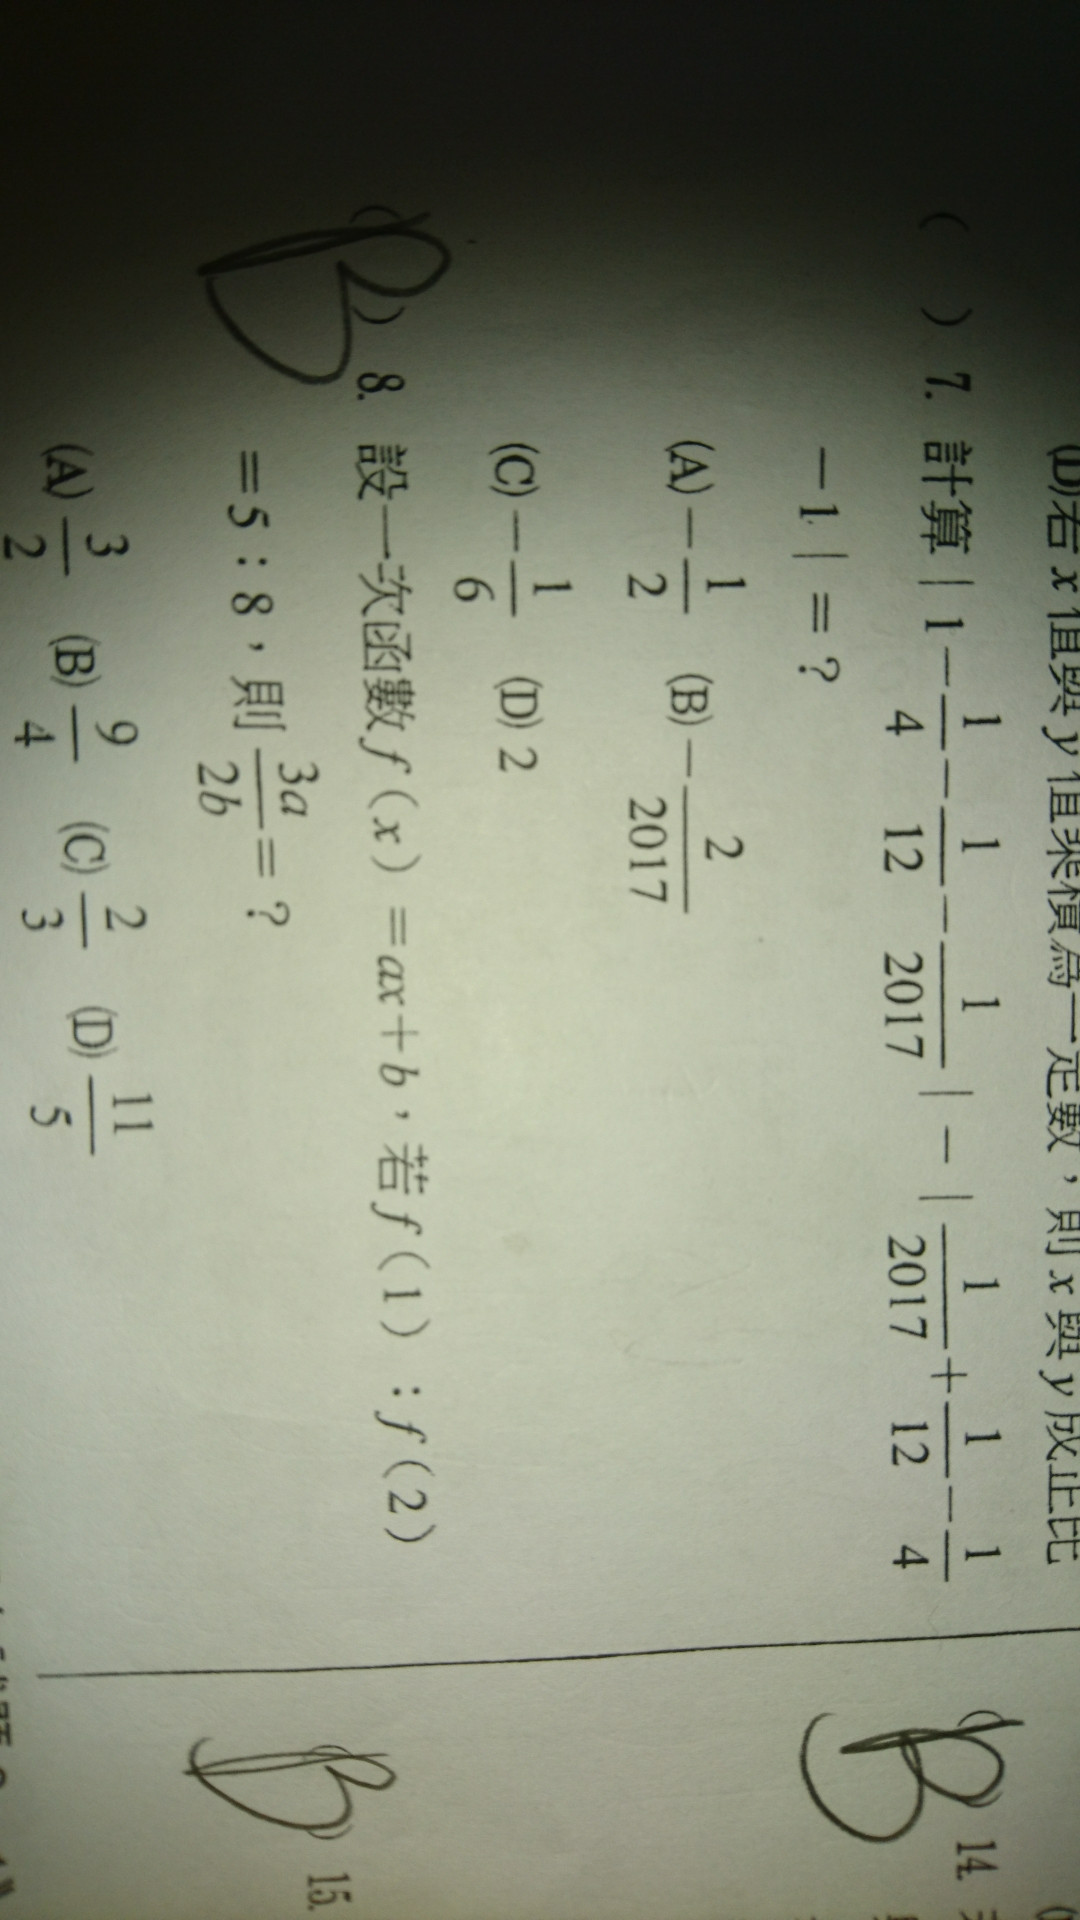 (D)若 x 值與 y 值乘積為一定數，則 x 與 y 成正比
( ) 7. 計算 | 1 − 1/4 − 1/12 − 1/2017 | − | 1/2017 + 1/12 − 1/4
− 1 | = ?
(A) − 1/2 (B) − 2/2017
(C) − 1/6 (D) 2
(B) 8. 設一次函數 f(x) = ax + b，若 f(1) : f(2)
= 5 : 8，則 3a/2b = ?
(A) 3/2 (B) 9/4 (C) 2/3 (D) 11/5
(B) 14.
(B) 15.